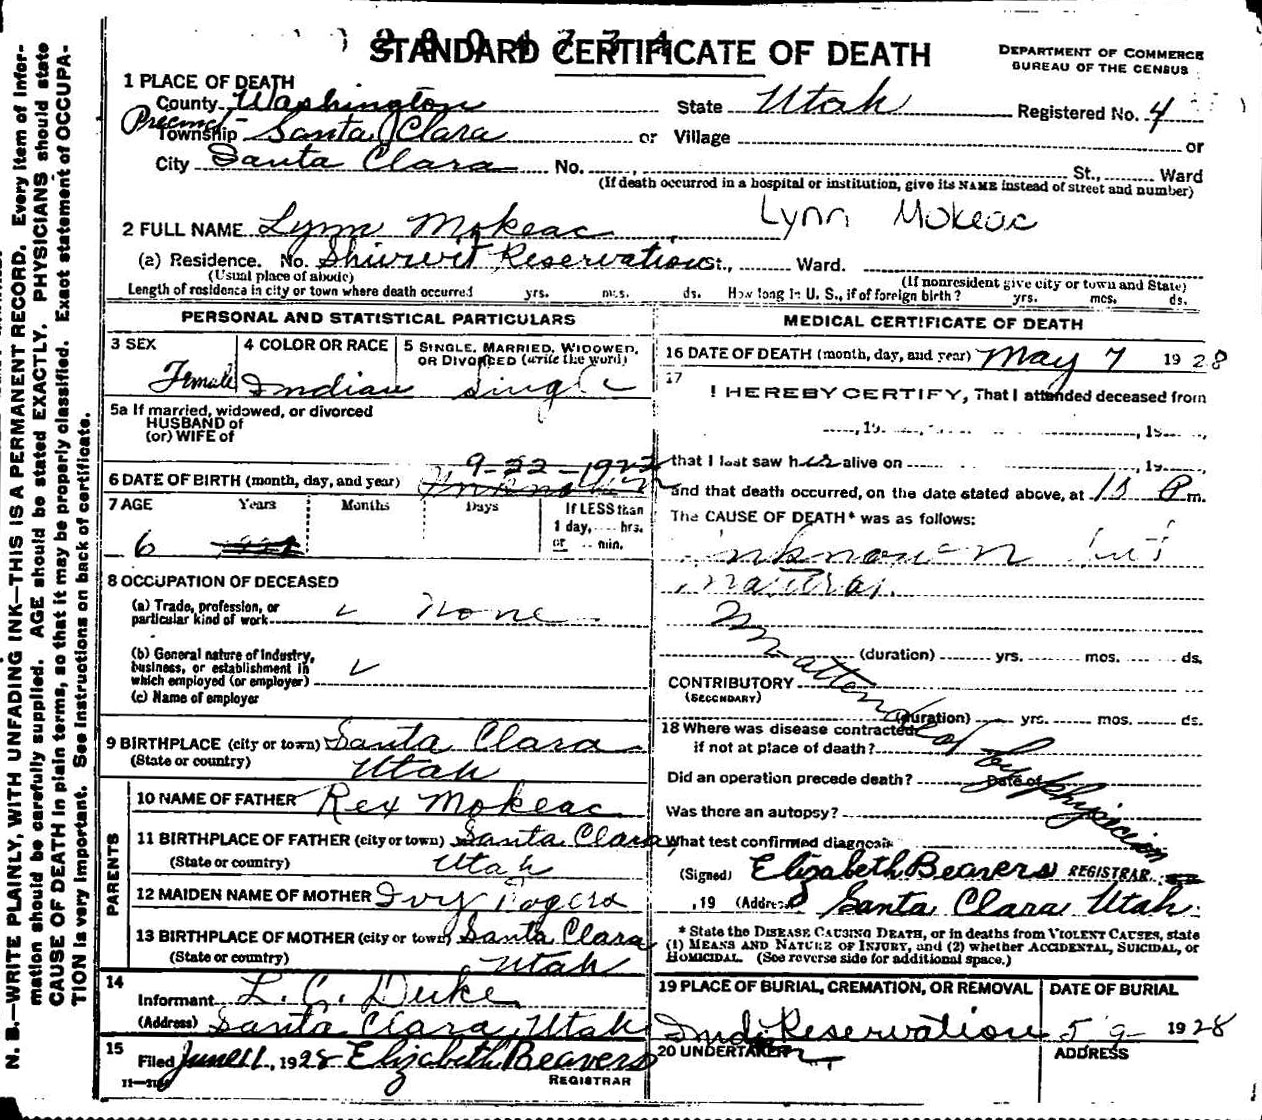 2804734
STANDARD CERTIFICATE OF DEATH
DEPARTMENT OF COMMERCE
BUREAU OF THE CENSUS
1 PLACE OF DEATH
County Washington State Utah Registered No. 4
Precinct
Township Santa Clara or Village or
City Santa Clara No. St., Ward
(If death occurred in a hospital or institution, give its NAME instead of street and number)
2 FULL NAME Lynn Mokeac Lynn Mokeac
(a) Residence. No. Shivwit Reservation St., Ward.
(Usual place of abode) (If nonresident give city or town and State)
Length of residence in city or town where death occurred yrs. mos. ds. How long in U. S., if of foreign birth? yrs. mos. ds.
PERSONAL AND STATISTICAL PARTICULARS
3 SEX 4 COLOR OR RACE 5 SINGLE, MARRIED, WIDOWED, OR DIVORCED (write the word)
Female Indian Single
5a If married, widowed, or divorced
HUSBAND of
(or) WIFE of
9-22-1922
6 DATE OF BIRTH (month, day, and year) Unknown
7 AGE Years Months Days If LESS than
1 day, hrs.
6 or min.
8 OCCUPATION OF DECEASED
(a) Trade, profession, or
particular kind of work None
(b) General nature of industry,
business, or establishment in
which employed (or employer)
(c) Name of employer
9 BIRTHPLACE (city or town) Santa Clara
(State or country) Utah
PARENTS
10 NAME OF FATHER Rex Mokeac
11 BIRTHPLACE OF FATHER (city or town) Santa Clara,
(State or country) Utah
12 MAIDEN NAME OF MOTHER Ivy Rogers
13 BIRTHPLACE OF MOTHER (city or town) Santa Clara
(State or country) Utah
14
Informant L. C. Duke
(Address) Santa Clara, Utah
15
Filed June 11, 1928 Elizabeth Beavers
REGISTRAR
MEDICAL CERTIFICATE OF DEATH
16 DATE OF DEATH (month, day, and year) May 7 1928
17
I HEREBY CERTIFY, That I attended deceased from
, 19 , 19
that I last saw her alive on , 19
and that death occurred, on the date stated above, at 10 P m.
The CAUSE OF DEATH* was as follows:
Unknown but
natural
Unattended by physician
(duration) yrs. mos. ds.
CONTRIBUTORY
(SECONDARY)
(duration) yrs. mos. ds.
18 Where was disease contracted
if not at place of death?
Did an operation precede death? Date of
Was there an autopsy?
What test confirmed diagnosis
(Signed) Elizabeth Beavers REGISTRAR
, 19 (Address) Santa Clara Utah
* State the DISEASE CAUSING DEATH, or in deaths from VIOLENT CAUSES, state
(1) MEANS AND NATURE OF INJURY, and (2) whether ACCIDENTAL, SUICIDAL, or
HOMICIDAL. (See reverse side for additional space.)
19 PLACE OF BURIAL, CREMATION, OR REMOVAL DATE OF BURIAL
Ind. Reservation 5 9 1928
20 UNDERTAKER ADDRESS
N. B.—WRITE PLAINLY, WITH UNFADING INK—THIS IS A PERMANENT RECORD. Every item of infor-
mation should be carefully supplied. AGE should be stated EXACTLY. PHYSICIANS should state
CAUSE OF DEATH in plain terms, so that it may be properly classified. Exact statement of OCCUPA-
TION is very important. See instructions on back of certificate.